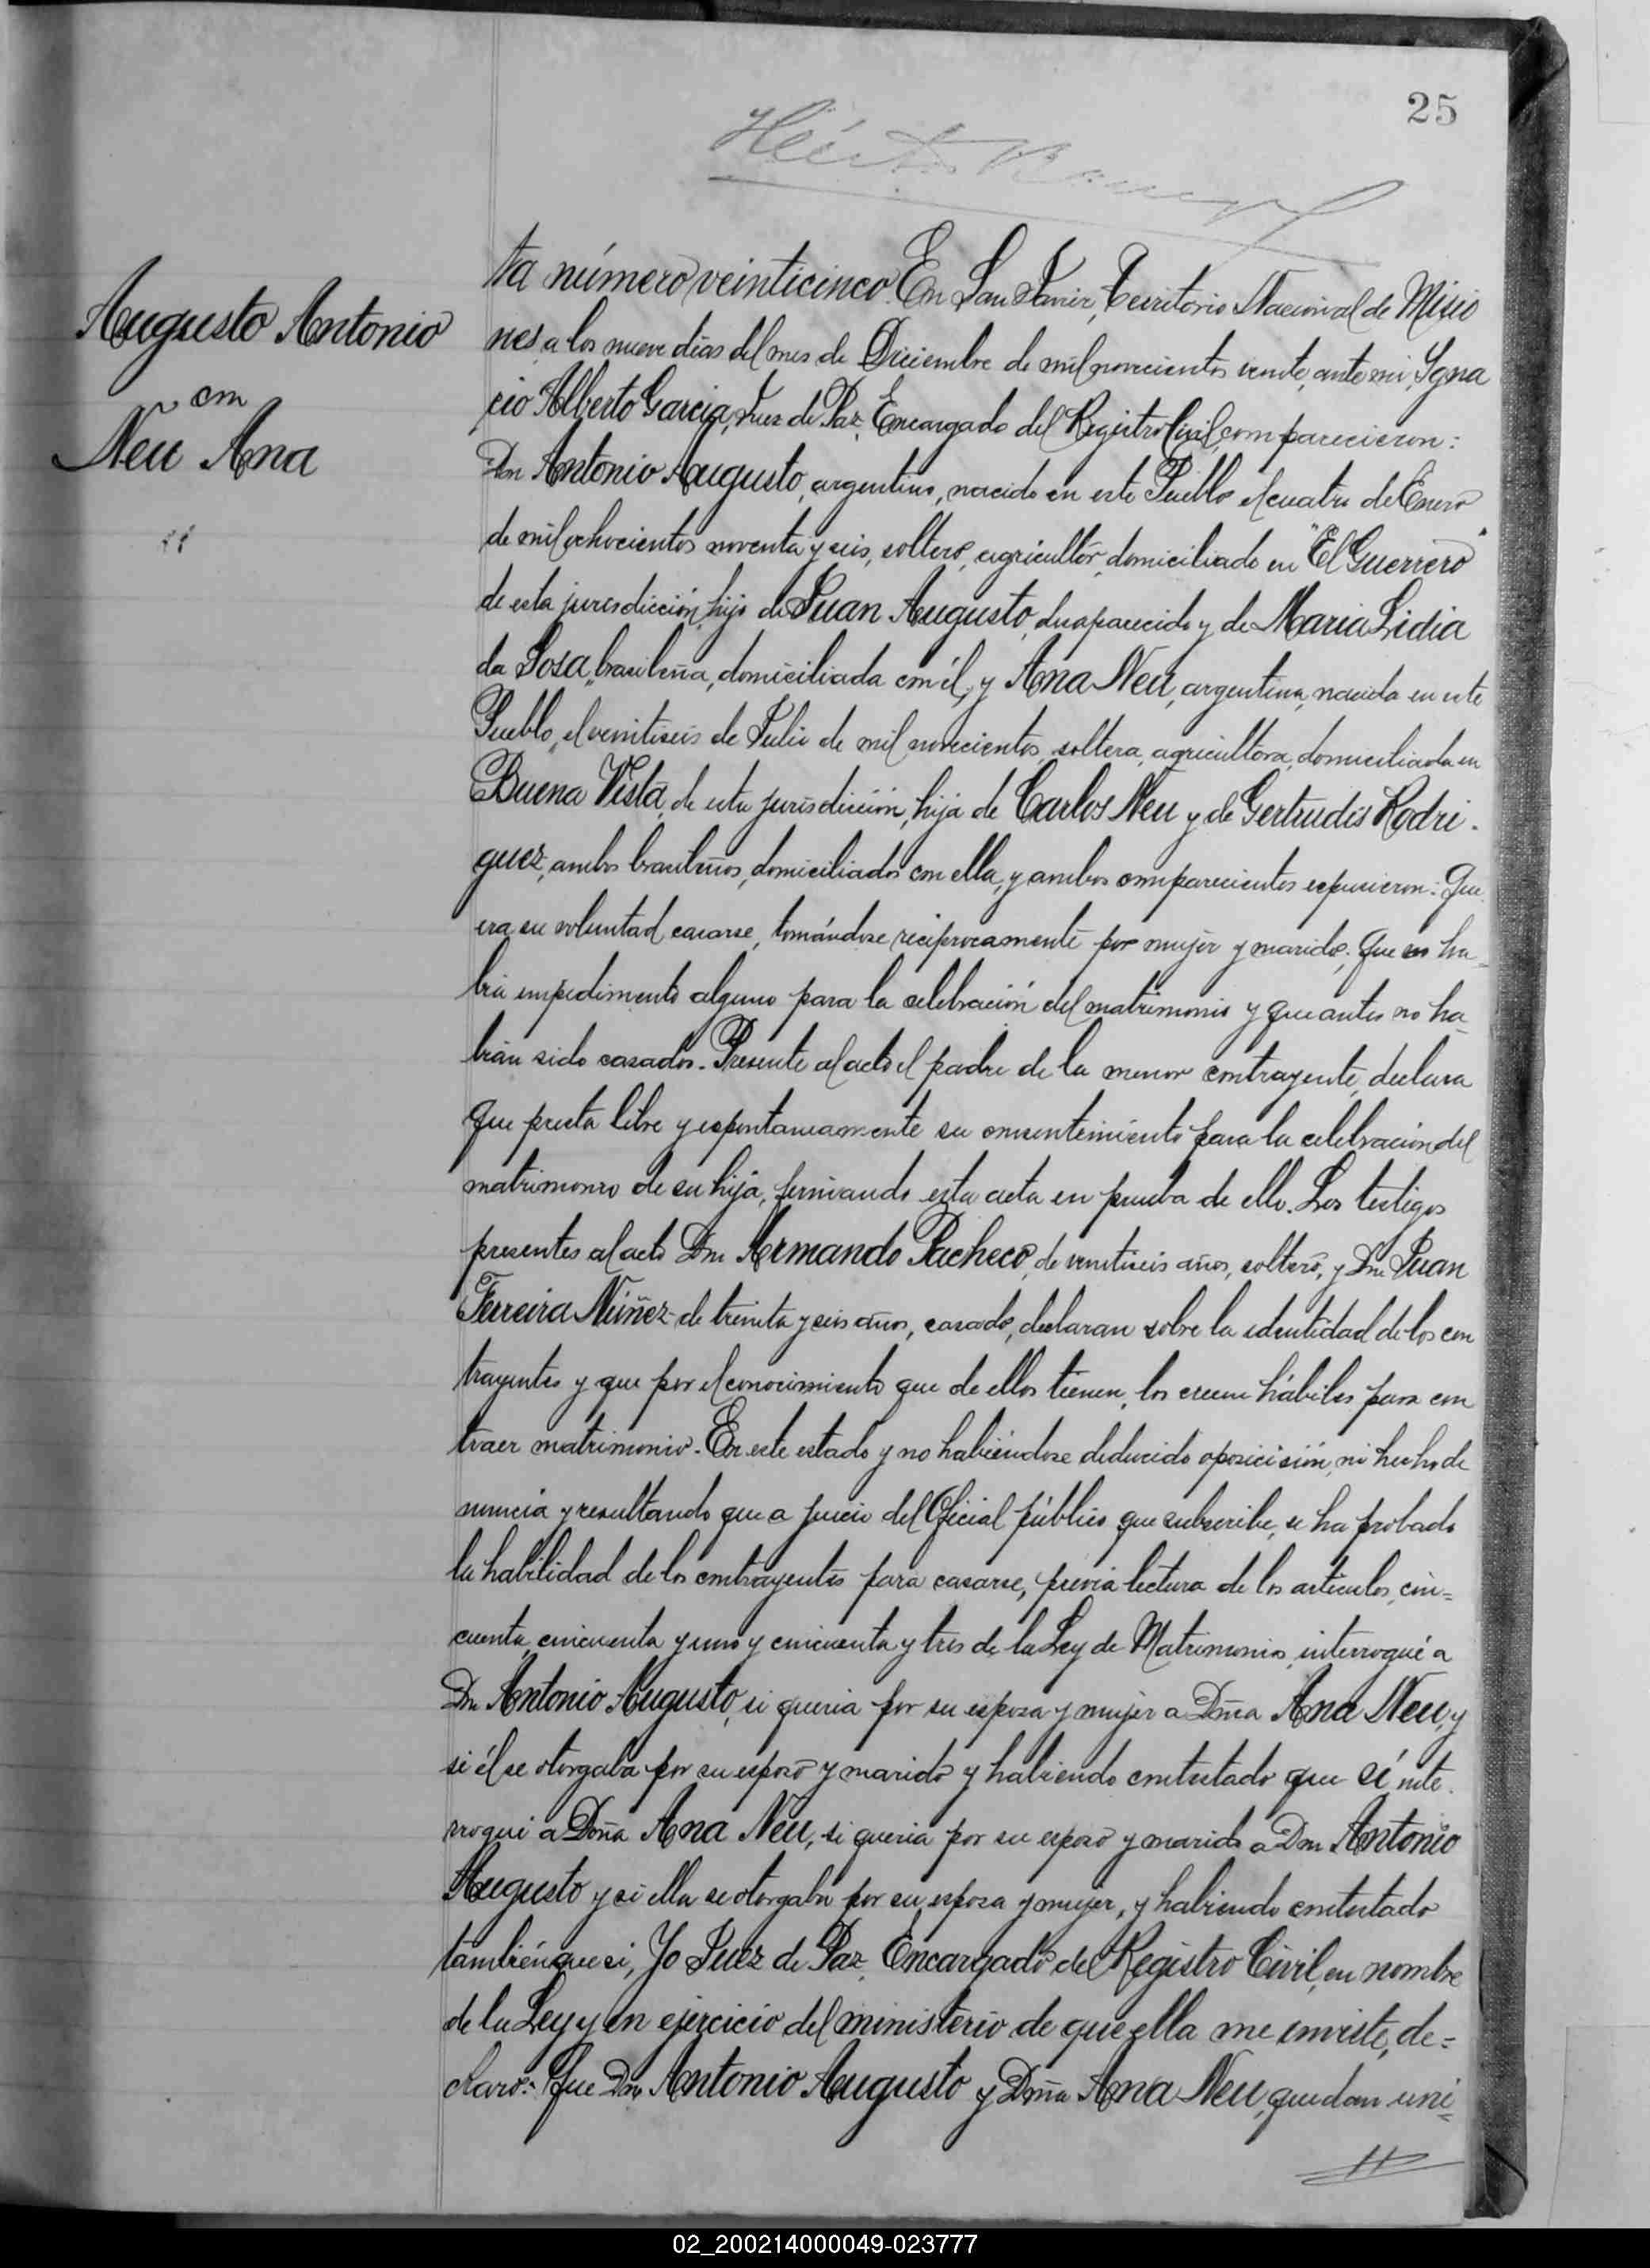 25
Augusto Antonio
con
Neu Ana
ta número veinticinco. En San Javier, Territorio Nacional de Misio
nes a los nueve días del mes de Diciembre de mil novecientos veinte, ante mi, Ygna
cio Alberto Garcia, Juez de Paz, Encargado del Registro Civil, comparecieron:
Don Antonio Augusto, argentino, nacido en este Pueblo el cuatro de Enero
de mil ochocientos noventa y seis, soltero, agricultor, domiciliado en "El Guerrero"
de esta jurisdicción, hijo de Juan Augusto, desaparecido y de Maria Lidia
da Sosa, brasileña, domiciliada con él, y Ana Neu, argentina, nacida en este
Pueblo, el veintiseis de Julio de mil novecientos, soltera, agricultora, domiciliada en
Buena Vista, de esta jurisdicción, hija de Carlos Neu y de Gertrudis Rodri-
guez, ambos brasileños, domiciliados con ella, y ambos comparecientes expusieron: Que
era su voluntad casarse, tomándose reciprocamente por mujer y marido; Que no ha=
bia impedimento alguno para la celebración del matrimonio y que antes no ha_
bian sido casados. Presente al acto el padre de la menor contrayente, declara
que presta libre y espontaneamente su consentimiento para la celebración del
matrimonio de su hija, firmando esta acta en prueba de ello. Los testigos
presentes al acto Don Armando Pacheco, de veintiseis años, soltero, y Don Juan
Ferreira Núñez de treinta y seis años, casado, declaran sobre la identidad de los con
trayentes y que por el conocimiento que de ellos tienen, los creen hábiles para con
traer matrimonio. En este estado y no habiéndose deducido oposicisión, ni hecho de
nuncia y resultando que a juicio del Oficial público que subscribe, se ha probado
la habilidad de los contrayentes para casarse, previa lectura de los artículos, cin=
cuenta, cincuenta y uno y cincuenta y tres de la Ley de Matrimonio, interrogué a
Dn Antonio Augusto, si queria por su esposa y mujer a Doña Ana Neu, y
si él se otorgaba por su esposo y marido y habiendo contestado que sí, inte.
rrogué a Doña Ana Neu, si queria por su esposo y marido a Don Antonio
Augusto y si ella se otorgaba por su esposa y mujer, y habiendo contestado
también que si, Yo Juez de Paz, Encargado del Registro Civil, en nombre
de la Ley y en ejercicio del ministerio de que ella me inviste, de=
claro: Que Dn Antonio Augusto y Doña Ana Neu, quedan uni=
02_200214000049-023777